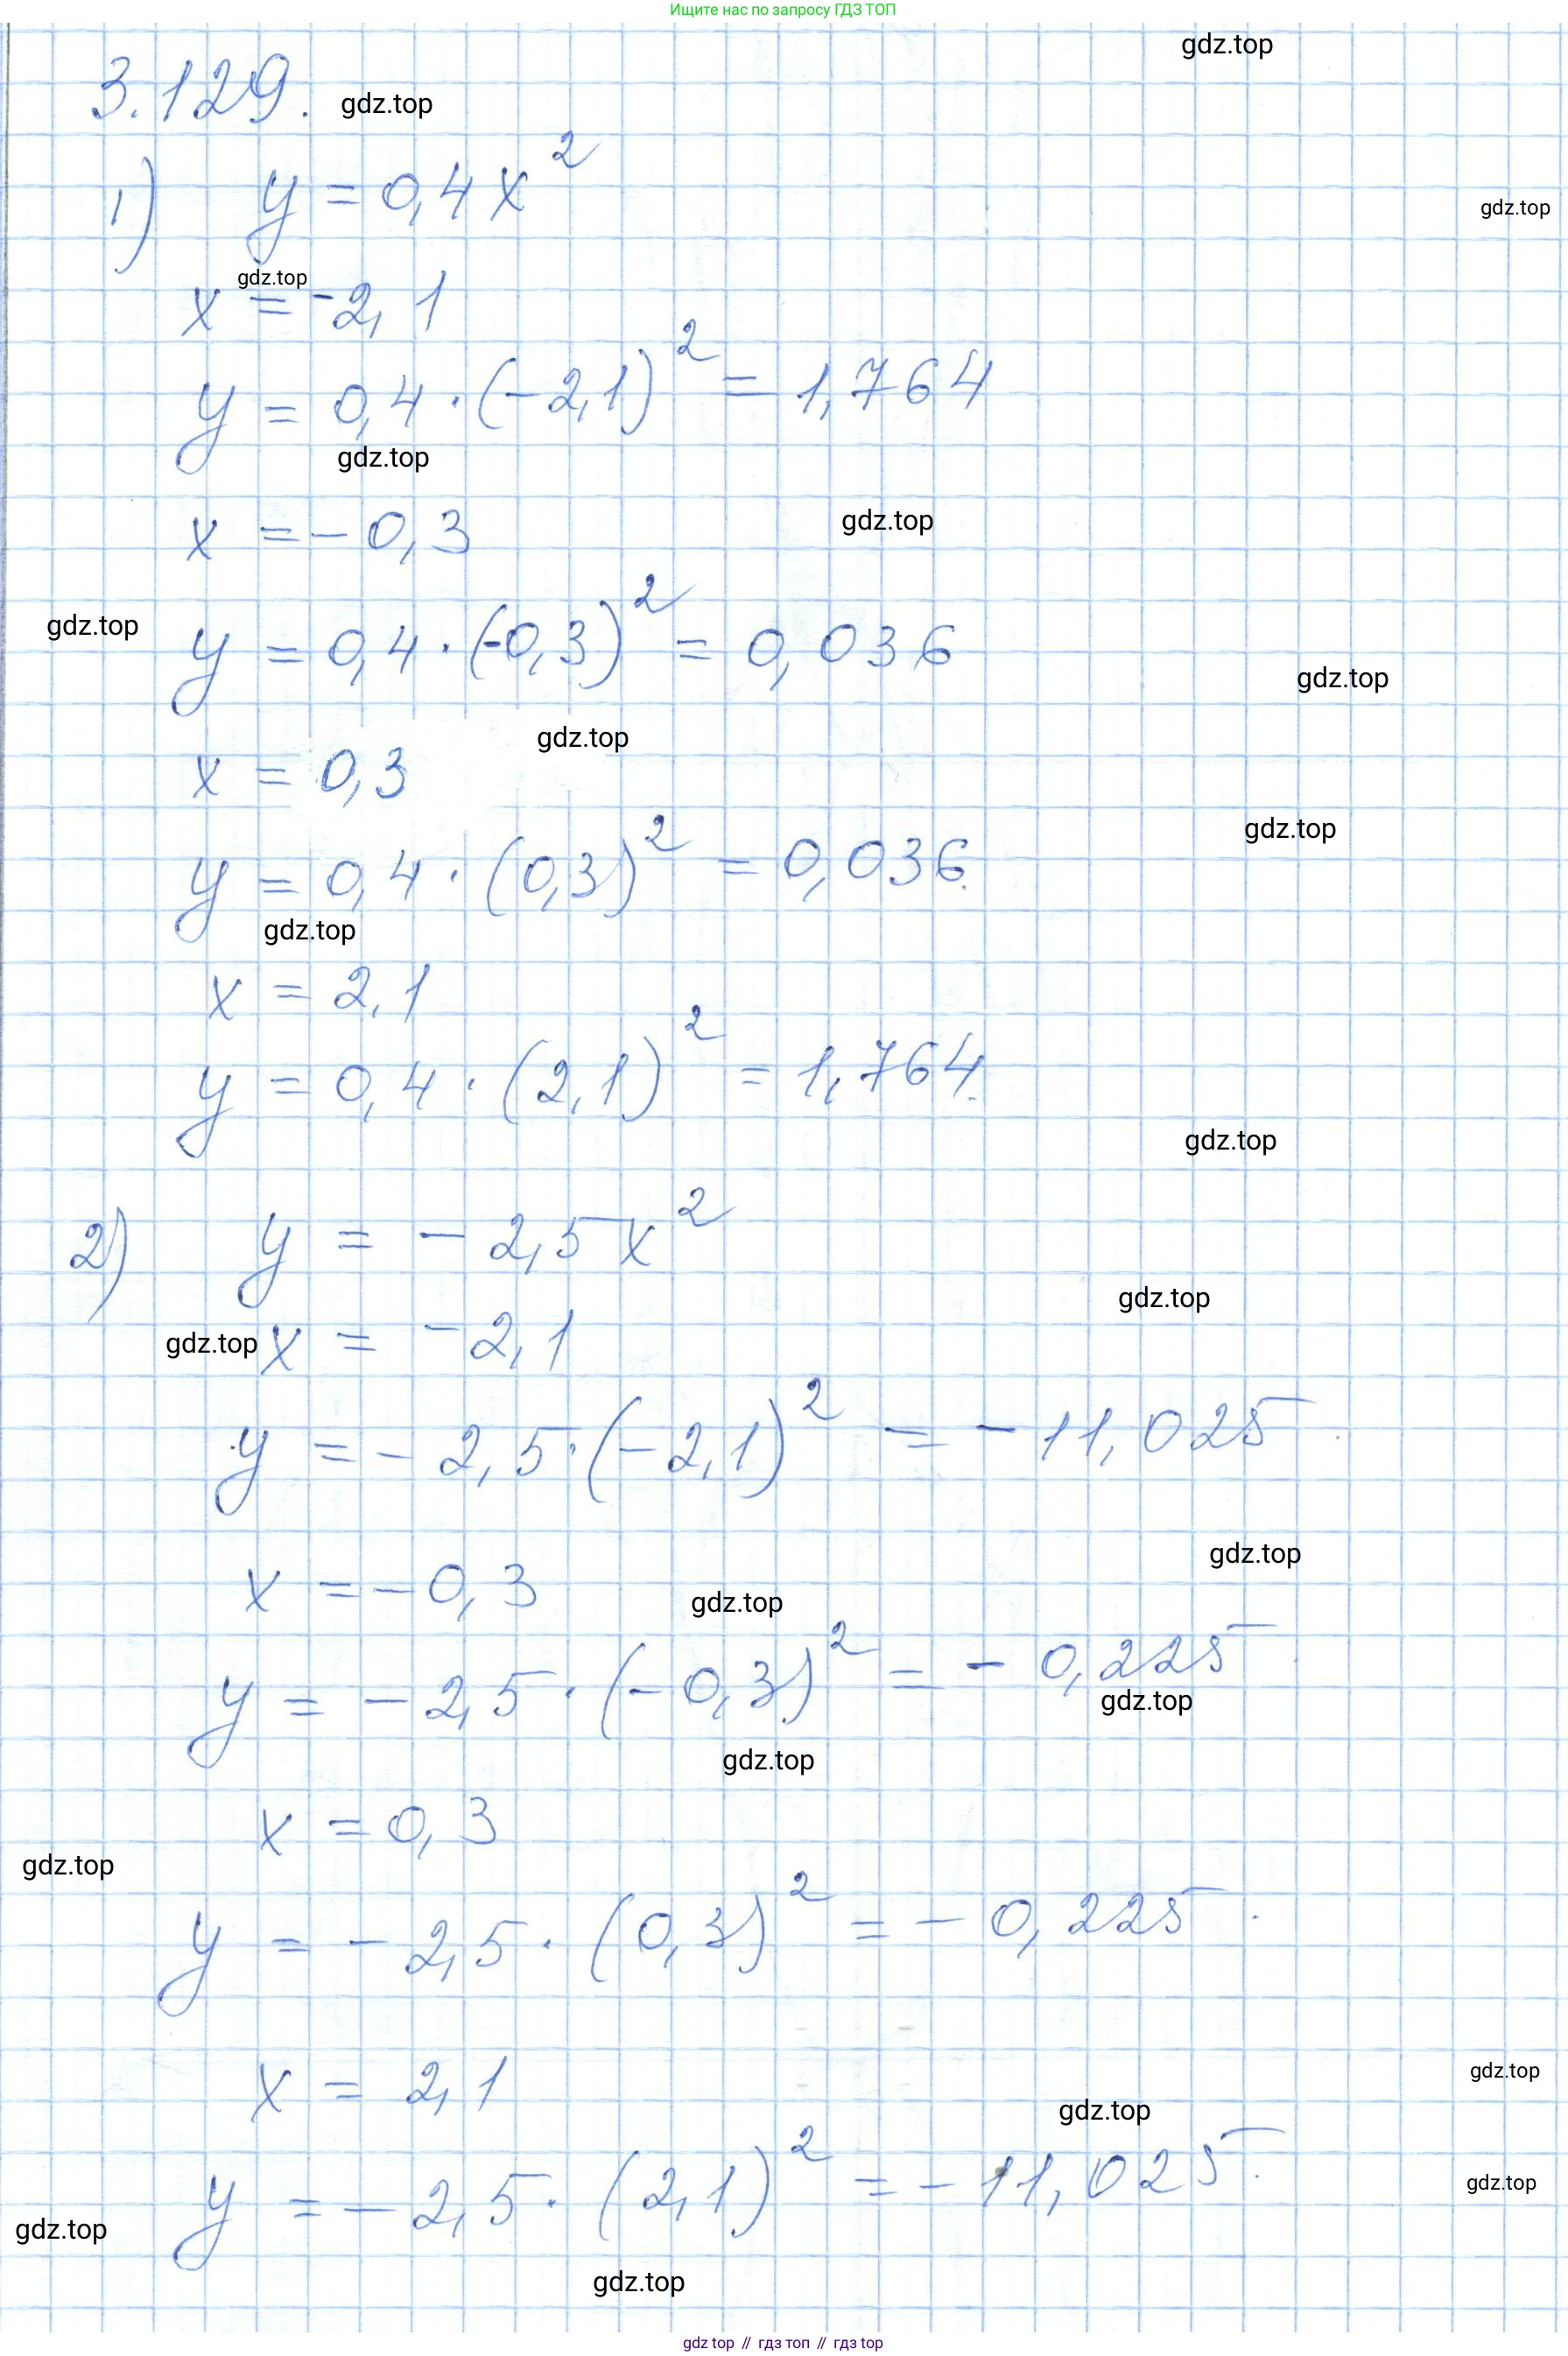 Ищите нас по запросу ГДЗ ТОП
gdz.top
3.129.
gdz.top
1) y = 0,4x²
gdz.top
gdz.top
x = -2,1
y = 0,4 · (-2,1)² = 1,764
gdz.top
x = -0,3
gdz.top
gdz.top
y = 0,4 · (-0,3)² = 0,036
gdz.top
gdz.top
x = 0,3
gdz.top
y = 0,4 · (0,3)² = 0,036.
gdz.top
x = 2,1
y = 0,4 · (2,1)² = 1,764.
gdz.top
2) y = -2,5x²
gdz.top
gdz.top
x = -2,1
y = -2,5 · (-2,1)² = -11,025.
gdz.top
x = -0,3
gdz.top
y = -2,5 · (-0,3)² = -0,225.
gdz.top
gdz.top
x = 0,3
gdz.top
y = -2,5 · (0,3)² = -0,225.
gdz.top
x = 2,1
gdz.top
y = -2,5 · (2,1)² = -11,025.
gdz.top
gdz.top
gdz.top
gdz top // гдз топ // гдз top